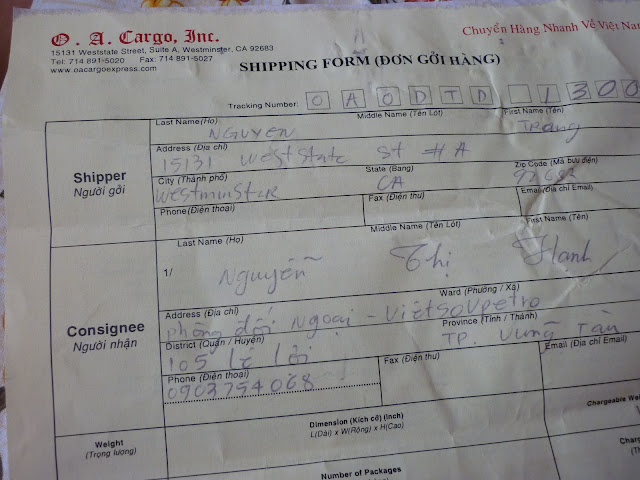 O. A. Cargo, Inc.
Chuyển Hàng Nhanh Về Việt Nam
15131 Weststate Street, Suite A, Westminster, CA 92683
Tel: 714 891-5020 Fax: 714 891-5027
www.oacargoexpress.com
SHIPPING FORM (ĐƠN GỞI HÀNG)
Tracking Number: O A O D T D 1 3 0 0
Last Name (Họ) Middle Name (Tên Lót) First Name (Tên)
NGUYEN Trang
Shipper
Người gởi
Address (Địa chỉ)
15131 West State St # A
City (Thành phố) State (Bang) Zip Code (Mã bưu điện)
Westminster CA
Phone (Điện thoại) Fax (Điện thu) Email (Địa chỉ Email)
Last Name (Họ) Middle Name (Tên Lót) First Name (Tên)
1/ Nguyễn Thị Hanh
Consignee
Người nhận
Ward (Phường / Xã)
Address (Địa chỉ)
Phòng đối Ngoại - Vietsovpetro
District (Quận / Huyện) Province (Tỉnh / Thành)
105 Lê Lợi TP. Vũng Tàu
Phone (Điện thoại) Fax (Điện thu) Email (Địa chỉ Email)
0903754068
Weight
(Trọng lượng)
Dimension (Kích cỡ) (Inch)
L(Dài) x W(Rộng) x H(Cao)
Chargeable
Number of Packages